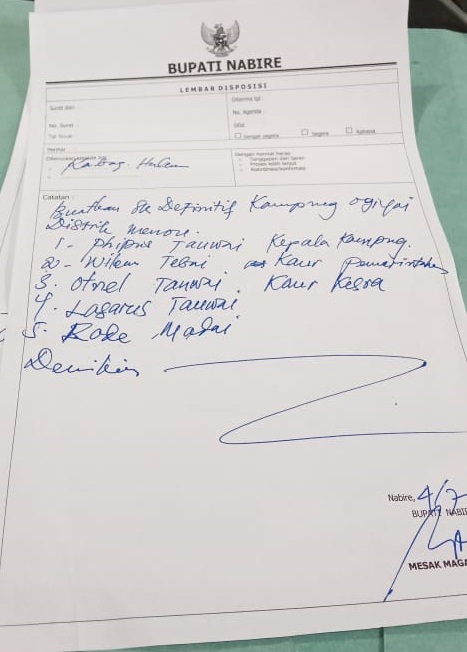 BUPATI NABIRE
LEMBAR DISPOSISI
Surat dari :
No. Surat :
Tgl Surat :
Diterima tgl :
No. Agenda :
Sifat :
Sangat segera
Segera
Rahasia
Perihal
Diteruskan kepada Sdr.
Kabag. Hukum
Dengan hormat harap :
Tanggapan dan Saran
Proses lebih lanjut
Koordinasi/konfirmasi
Catatan :
Buatkan SK Definitif Kampung Ogiyai
Distrik Menou.
1. Phipus Tauwai Kepala Kampung.
2. Wilem Tebai Kaur Pemerintahan
3. Otnel Tauwai. Kaur Kesra
4. Lasarus Tauwai
5. Rode Madai
Demikian
Nabire, 4/7
BUPATI NABIR
MESAK MAGA